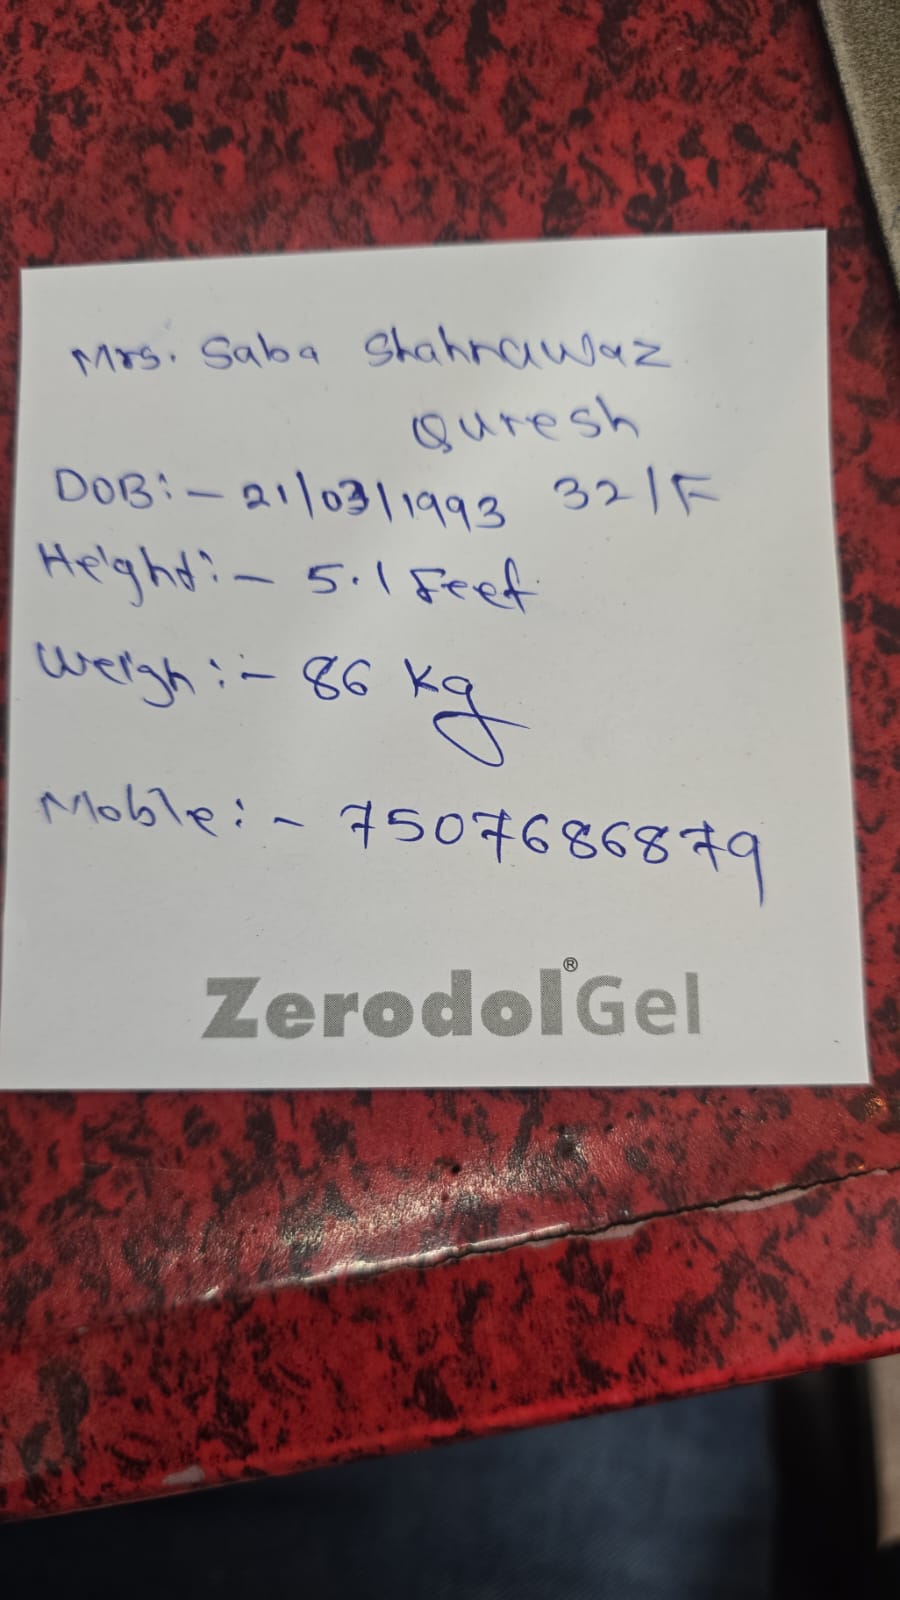 Mrs. Saba Shahnawaz
Quresh
DOB:- 21/03/1993 32/F
Height:- 5.1 Feet
Weigh:- 86 Kg
Moble:- 7507686879
Zerodol® Gel